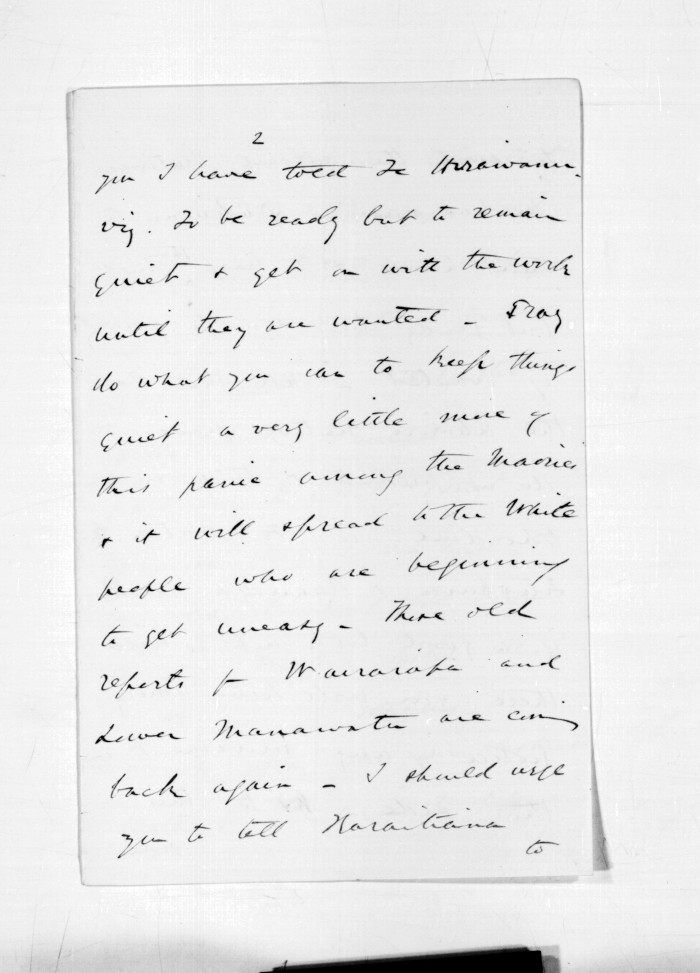 2
you I have told Te Hirawanu.
viz. To be ready but to remain
quiet & get on with the work
until they are wanted - Pray
do what you can to keep things
quiet a very little more of
this panic among the Maories
& it will spread to the White
people who are beginning
to get uneasy - These old
reports fr Wairarapa and
Lower Manawatu are coming
back again - I should urge
you to tell Karaitiana
to